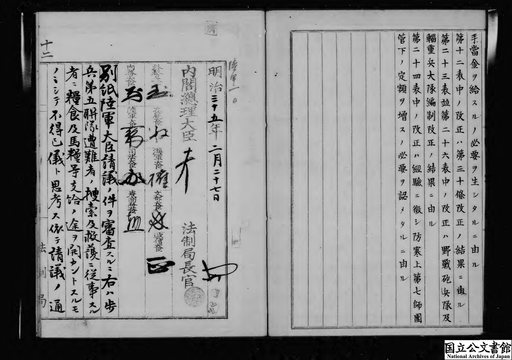 手當金ヲ給スルノ必要ヲ生シタルニ由ル
第十二表中ノ改正ハ第三十條改正ノ結果ニ由ル
第二十三表竝第二十六表中ノ改正ハ野戰砲兵隊及
輜重兵大隊編制改正ノ結果ニ由ル
第二十四表中ノ改正ハ經驗ニ徵シ防寒上第七師團
管下ノ定額ヲ增スノ必要ヲ認メタルニ由ル
明治三十五年二月二十七日
內閣總理大臣
法制局長官
別紙陸軍大臣請議ノ件ヲ審査スルニ右ハ步
兵第五聯隊遭難者ノ搜索及救護ニ從事スル
者ニ糧食及馬糧等支給ノ途ヲ開カントスルモ
ノニシテ不得已儀ト思考ス依テ請議ノ通
法制局
十二
国立公文書館
National Archives of Japan